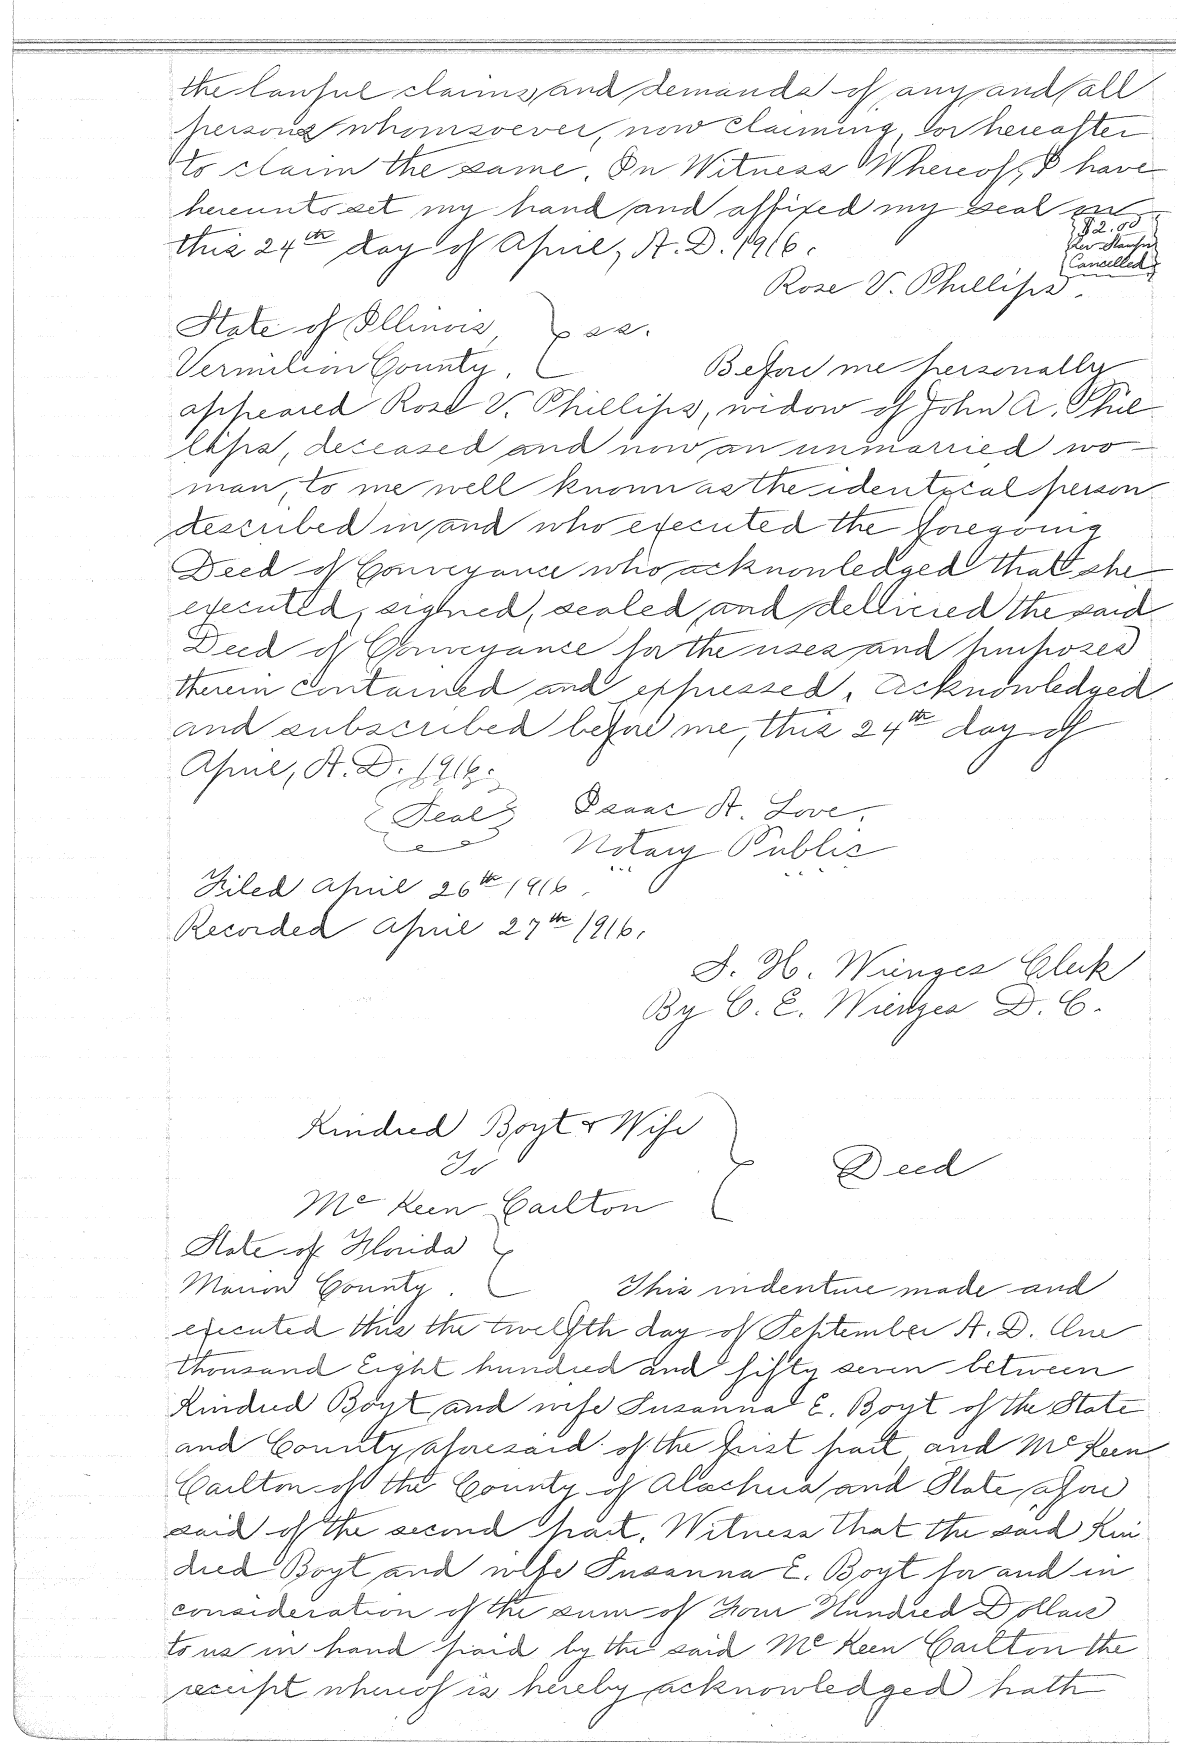 the lawful claims and demands of any and all
persons whomsoever, now claiming, or hereafter
to claim the same. In Witness Whereof, I have
hereunto set my hand and affixed my seal on
this 24th day of April, A.D. 1916.
$2.00
Rev Stamps
Cancelled
Rose V. Phillips.
State of Illinois, } ss.
Vermilion County. Before me personally
appeared Rose V. Phillips, widow of John A. Phil
lips, deceased and now an unmarried wo-
man, to me well known as the identical person
described in and who executed the foregoing
Deed of Conveyance who acknowledged that she
executed, signed, sealed and delivered the said
Deed of Conveyance for the uses and purposes
therein contained and expressed. Acknowledged
and subscribed before me, this 24th day of
April, A.D. 1916.
Seal Isaac A. Love.
Notary Public
Filed April 26th 1916.
Recorded April 27th 1916.
S. H. Wienges Clerk
By C. E. Wienges D. C.
Kindred Boyt & Wife
To } Deed
Mc Keen Carlton
State of Florida }
Marion County. This indenture made and
executed this the twelfth day of September A.D. One
thousand Eight hundred and fifty seven between
Kindred Boyt and wife Susanna E. Boyt of the State
and County aforesaid of the first part and Mc Keen
Carlton of the County of Alachua and State afore
said of the second part. Witness that the said Kin
dred Boyt and wife Susanna E. Boyt for and in
consideration of the sum of Four Hundred Dollars
to us in hand paid by the said Mc Keen Carlton the
receipt whereof is hereby acknowledged hath